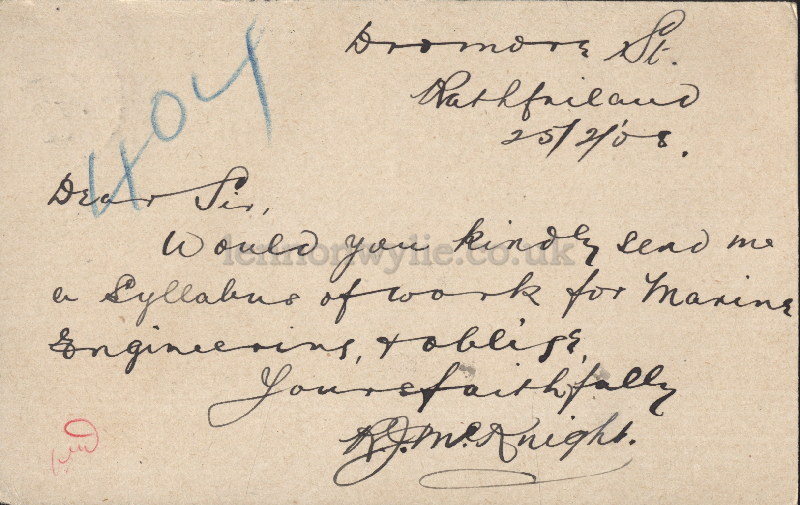 Dromore St.
Rathfriland
25/2/08.
404
Dear Sir,
Would you kindly send me
lennonwylie.co.uk
a Syllabus of work for Marine
Engineering, & oblige,
Yours faithfully
R.J. McKnight.